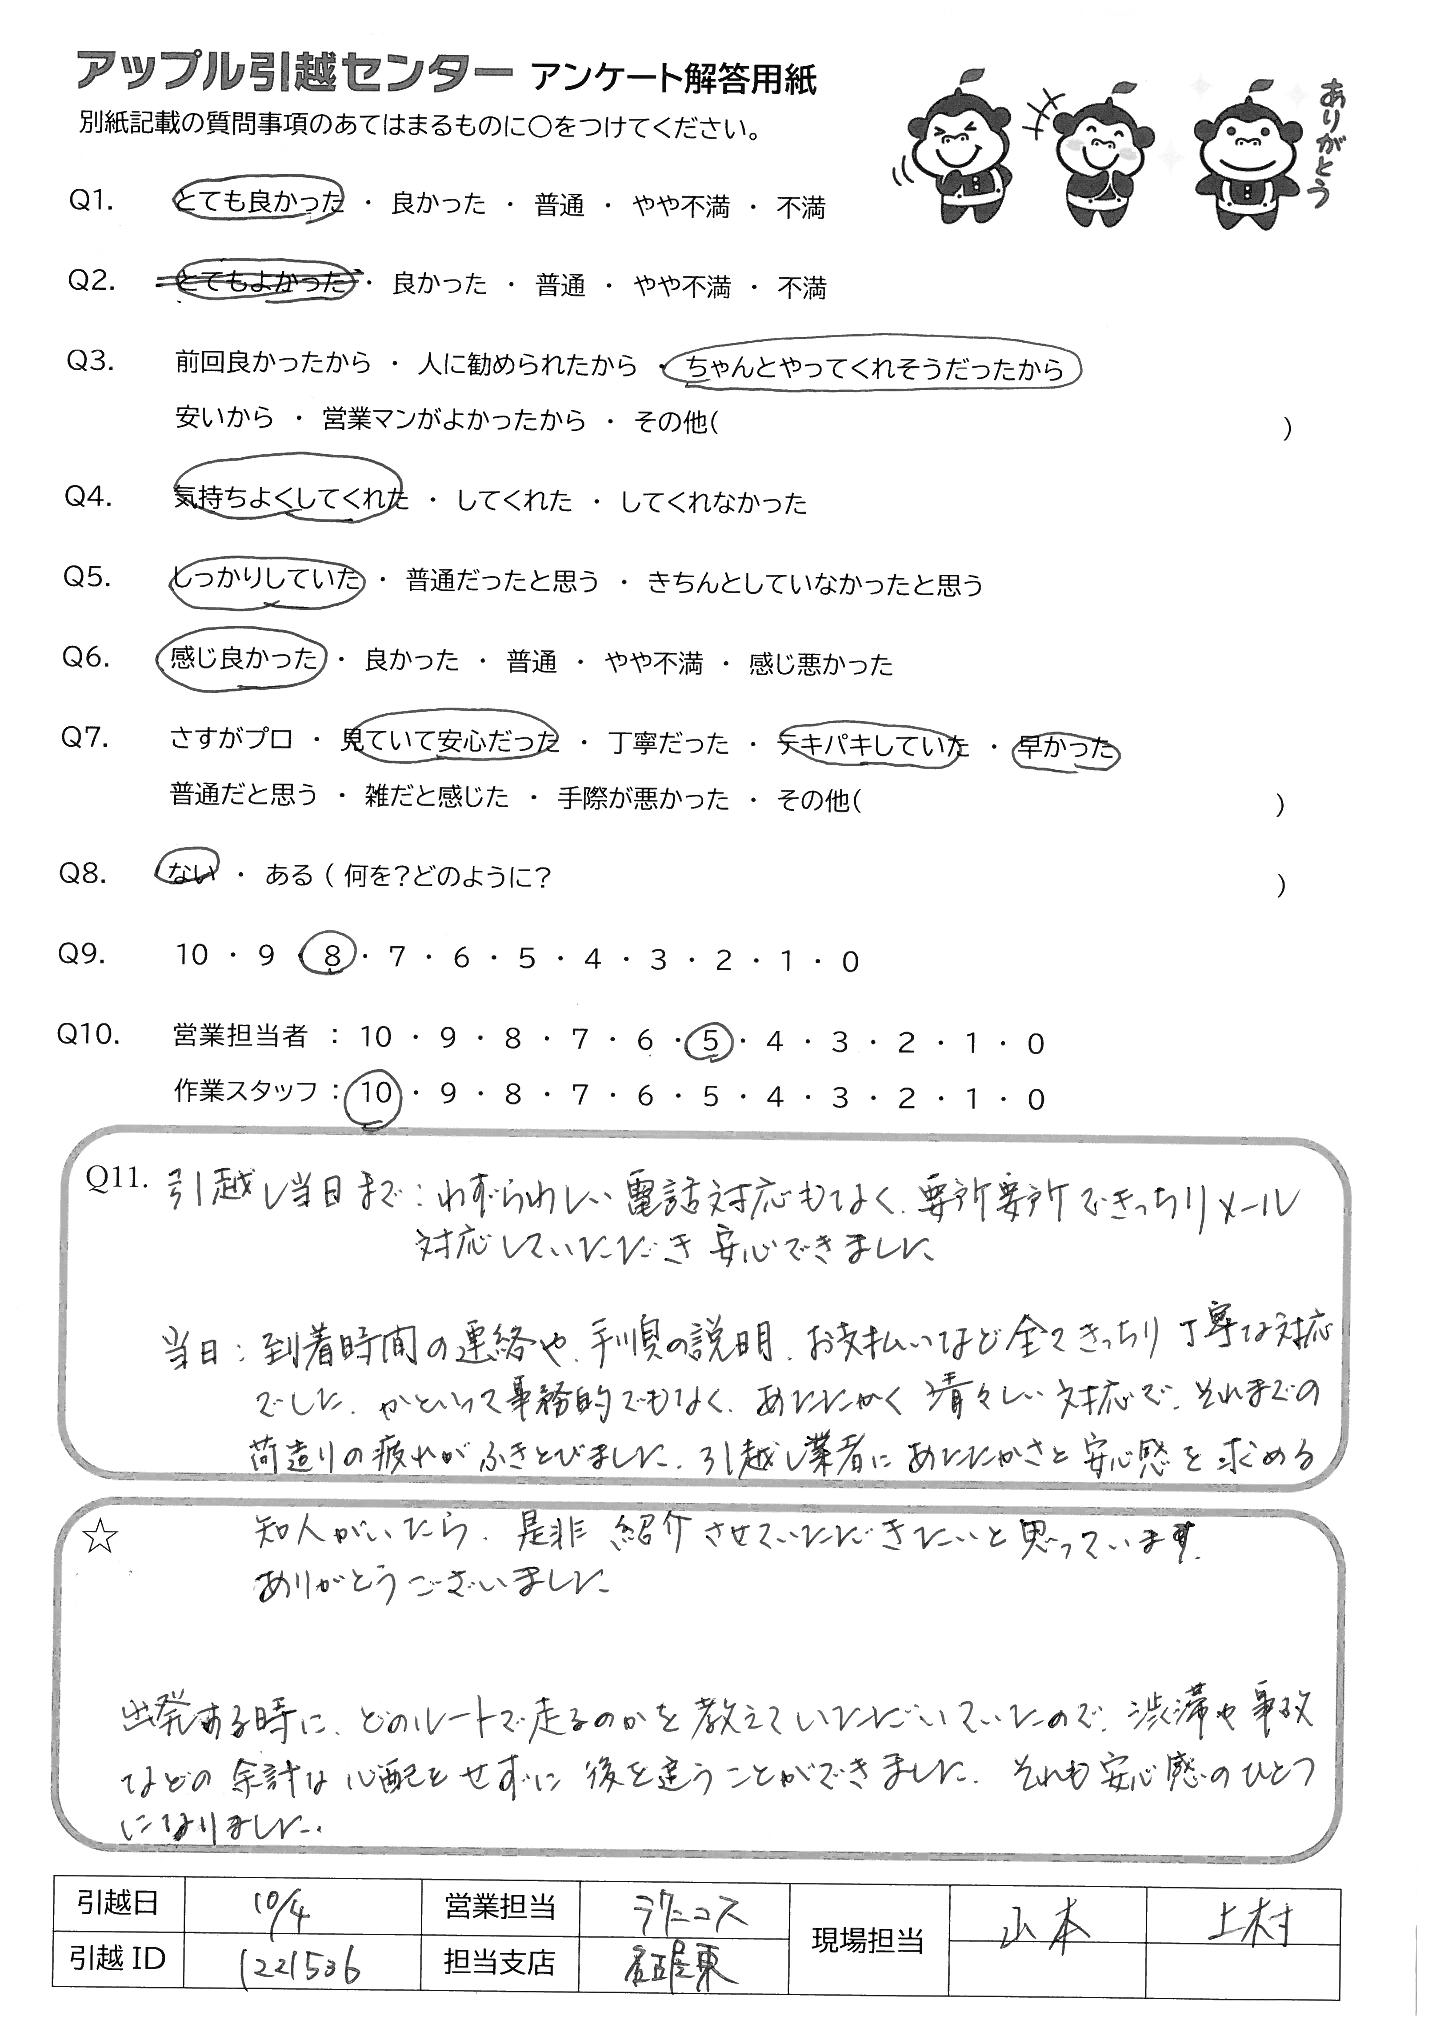 アップル引越センター アンケート解答用紙
別紙記載の質問事項のあてはまるものに○をつけてください。
ありがとう
Q1. とても良かった ・ 良かった ・ 普通 ・ やや不満 ・ 不満
Q2. とてもよかった ・ 良かった ・ 普通 ・ やや不満 ・ 不満
Q3. 前回良かったから ・ 人に勧められたから ・ ちゃんとやってくれそうだったから
安いから ・ 営業マンがよかったから ・ その他( )
Q4. 気持ちよくしてくれた ・ してくれた ・ してくれなかった
Q5. しっかりしていた ・ 普通だったと思う ・ きちんとしていなかったと思う
Q6. 感じ良かった ・ 良かった ・ 普通 ・ やや不満 ・ 感じ悪かった
Q7. さすがプロ ・ 見ていて安心だった ・ 丁寧だった ・ テキパキしていた ・ 早かった
普通だと思う ・ 雑だと感じた ・ 手際が悪かった ・ その他( )
Q8. ない ・ ある ( 何を？どのように？ )
Q9. 10 ・ 9 ・ 8 ・ 7 ・ 6 ・ 5 ・ 4 ・ 3 ・ 2 ・ 1 ・ 0
Q10. 営業担当者 ： 10 ・ 9 ・ 8 ・ 7 ・ 6 ・ 5 ・ 4 ・ 3 ・ 2 ・ 1 ・ 0
作業スタッフ ： 10 ・ 9 ・ 8 ・ 7 ・ 6 ・ 5 ・ 4 ・ 3 ・ 2 ・ 1 ・ 0
Q11. 引越し当日まで：わずらわしい電話対応もなく、要所要所できっちりメール
対応していただき安心できました。
当日：到着時間の連絡や、手順の説明、お支払いなど全てきっちり丁寧な対応
でした。かといって事務的でもなく、あたたかく清々しい対応で、それまでの
荷造りの疲れがふきとびました。引越し業者にあたたかさと安心感を求める
☆ 知人がいたら、是非紹介させていただきたいと思っています。
ありがとうございました。
出発する時に、どのルートで走るのかを教えていただいていたので、渋滞や事故
などの余計な心配をせずに後を追うことができました。それも安心感のひとつ
になりました。
引越日 10/4 営業担当 ラクニコス 現場担当 山本 上村
引越ID 1221536 担当支店 東